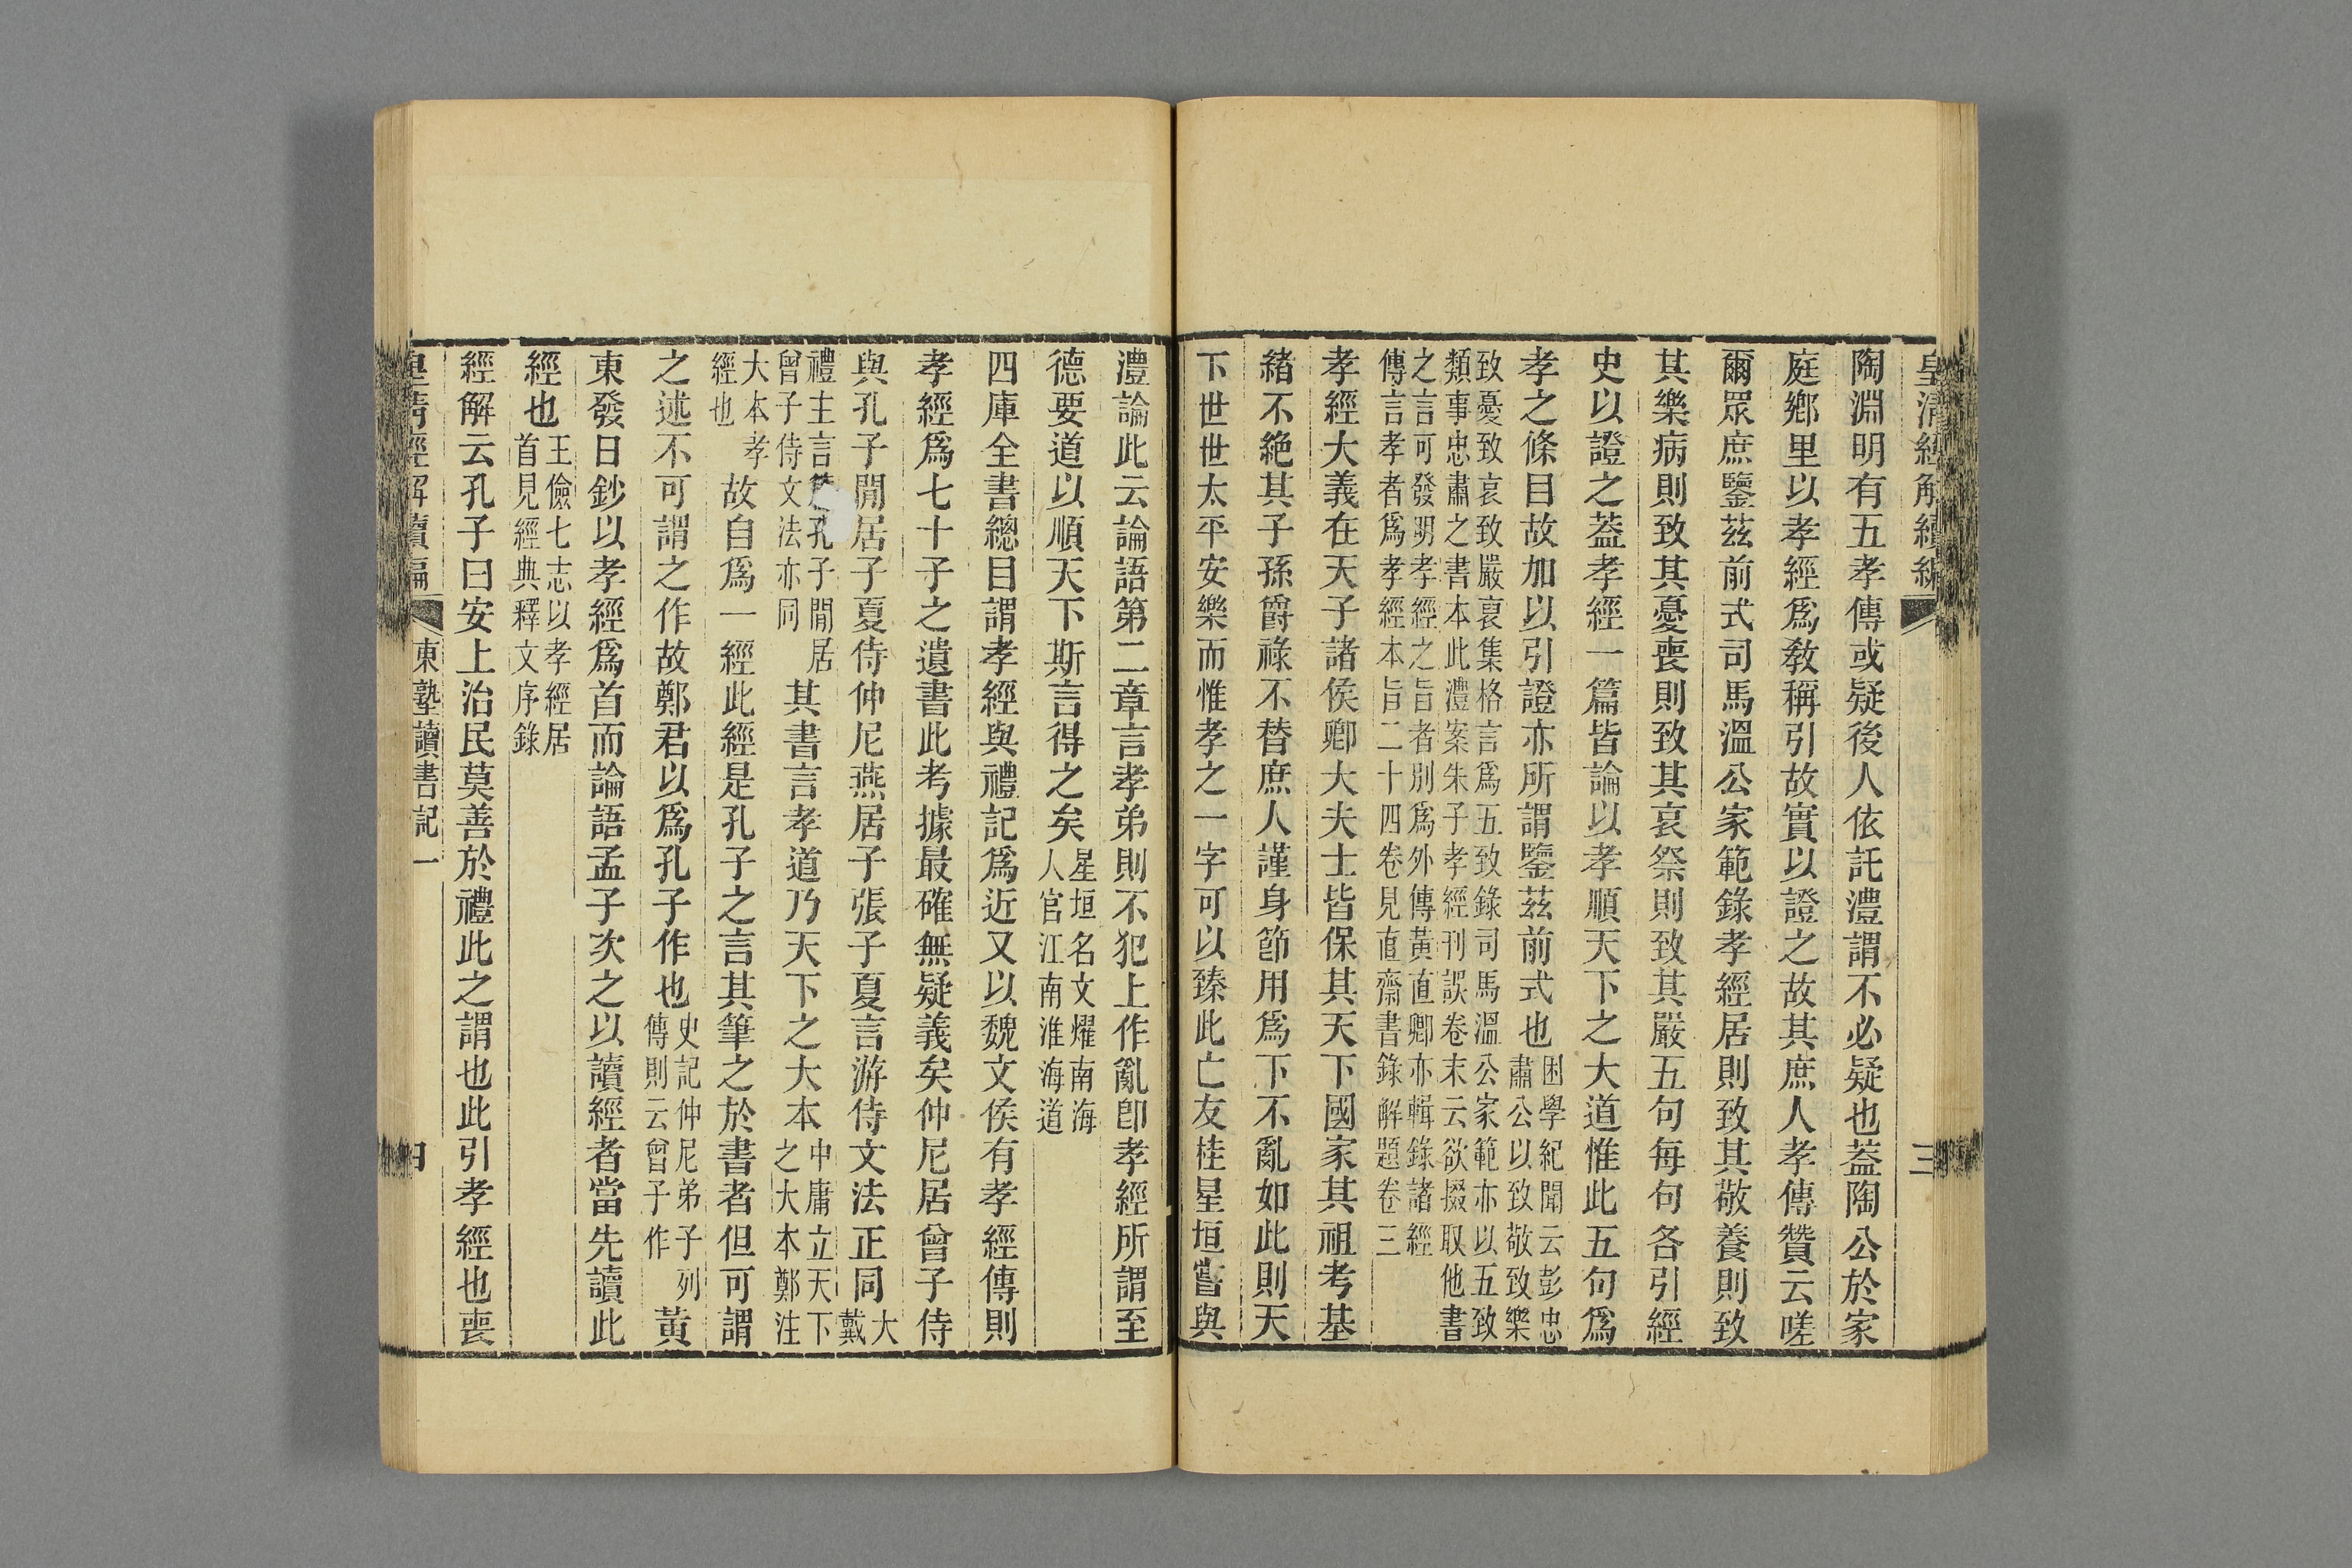 皇清經解續編
三
陶淵明有五孝傳或疑後人依託澧謂不必疑也葢陶公於家
庭鄉里以孝經爲敎稱引故實以證之故其庶人孝傳贊云嗟
爾眾庶鑒茲前式司馬溫公家範錄孝經居則致其敬養則致
其樂病則致其憂喪則致其哀祭則致其嚴五句每句各引經
史以證之葢孝經一篇皆論以孝順天下之大道惟此五句爲
孝之條目故加以引證亦所謂鑒茲前式也
困學紀聞云彭忠
肅公以致敬致樂
致憂致哀致嚴裒集格言爲五致錄司馬溫公家範亦以五致
類事忠肅之書本此澧案朱子孝經刊誤卷末云欲掇取他書
之言可發明孝經之旨者別爲外傳黃直卿亦輯錄諸經
傳言孝者爲孝經本旨二十四卷見直齋書錄解題卷三
孝經大義在天子諸侯卿大夫士皆保其天下國家其祖考基
緒不絕其子孫爵祿不替庶人謹身節用爲下不亂如此則天
下世世太平安樂而惟孝之一字可以臻此亡友桂星垣嘗與
澧論此云論語第二章言孝弟則不犯上作亂卽孝經所謂至
德要道以順天下斯言得之矣
星垣名文燿南海
人官江南淮海道
四庫全書總目謂孝經與禮記爲近又以魏文侯有孝經傳則
孝經爲七十子之遺書此考據最確無疑義矣仲尼居曾子侍
與孔子閒居子夏侍仲尼燕居子張子夏言游侍文法正同
大
戴
禮主言篇孔子閒居
曾子侍文法亦同
其書言孝道乃天下之大本
中庸立天下
之大本鄭注
大本孝
經也
故自爲一經此經是孔子之言其筆之於書者但可謂
之述不可謂之作故鄭君以爲孔子作也
史記仲尼弟子列
傳則云曾子作
黃
東發日鈔以孝經爲首而論語孟子次之以讀經者當先讀此
經也
王儉七志以孝經居
首見經典釋文序錄
經解云孔子曰安上治民莫善於禮此之謂也此引孝經也喪
皇清經解續編
東塾讀書記一
四